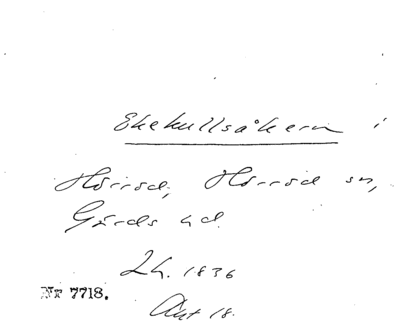 Ekekullsåkern i
Hörröd, Hörröd sn,
Gärds hd.
Lh. 1836
Nr 7718.
Akt 18.